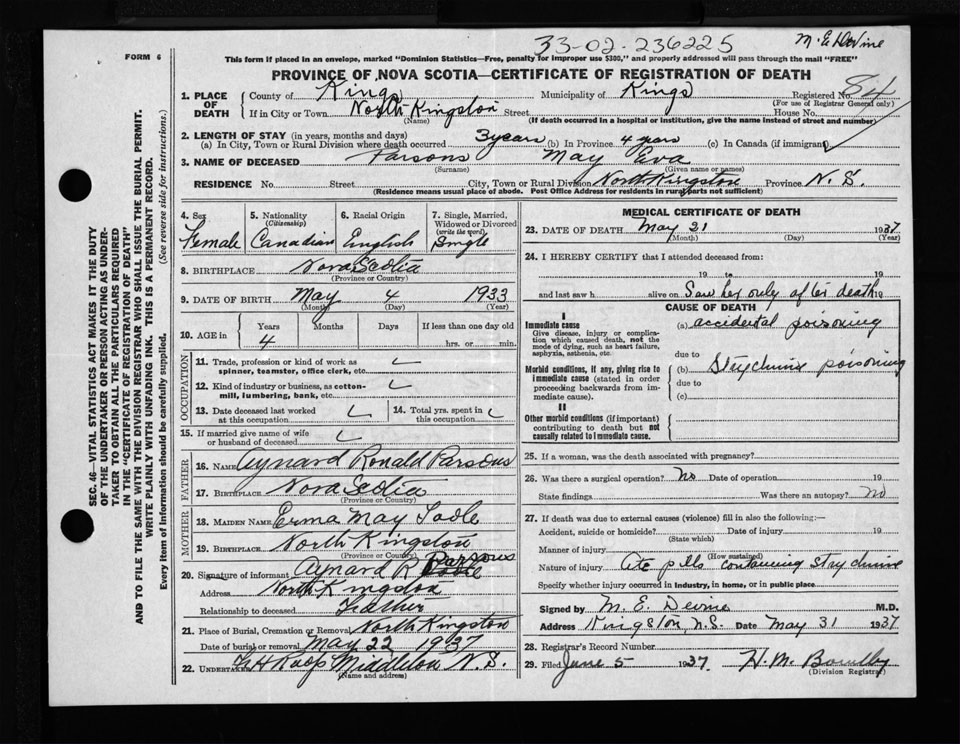 33-02-236225 M. E. Devine
FORM 6
This form if placed in an envelope, marked "Dominion Statistics—Free, penalty for improper use $300," and properly addressed will pass through the mail "FREE"
PROVINCE OF NOVA SCOTIA—CERTIFICATE OF REGISTRATION OF DEATH
1. PLACE OF DEATH County of Kings Municipality of Kings Registered No. 84
(For use of Registrar General only)
If in City or Town North Kingston Street House No.
(Name) (If death occurred in a hospital or institution, give the name instead of street and number)
2. LENGTH OF STAY (in years, months and days)
(a) In City, Town or Rural Division where death occurred 3 years (b) In Province 4 years (c) In Canada (if immigrant)
3. NAME OF DECEASED Parsons May Eva
(Surname) (Given name or names)
RESIDENCE No. Street City, Town or Rural Division North Kingston Province N. S.
(Residence means usual place of abode. Post Office Address for residents in rural parts not sufficient)
SEC. 46—VITAL STATISTICS ACT MAKES IT THE DUTY
OF THE UNDERTAKER OR PERSON ACTING AS UNDER-
TAKER TO OBTAIN ALL THE PARTICULARS REQUIRED
IN THE "CERTIFICATE OF REGISTRATION OF DEATH"
AND TO FILE THE SAME WITH THE DIVISION REGISTRAR WHO SHALL ISSUE THE BURIAL PERMIT.
WRITE PLAINLY WITH UNFADING INK. THIS IS A PERMANENT RECORD.
Every item of Information should be carefully supplied. (See reverse side for instructions.)
4. Sex Female
5. Nationality (Citizenship) Canadian
6. Racial Origin English
7. Single, Married, Widowed or Divorced (write the word) Single
8. BIRTHPLACE Nova Scotia
(Province or Country)
9. DATE OF BIRTH May 4 1933
(Month) (Day) (Year)
10. AGE in Years Months Days If less than one day old
4 hrs. or min.
OCCUPATION
11. Trade, profession or kind of work as
spinner, teamster, office clerk, etc.
12. Kind of industry or business, as cotton-
mill, lumbering, bank, etc.
13. Date deceased last worked
at this occupation
14. Total yrs. spent in
this occupation
15. If married give name of wife
or husband of deceased
FATHER
16. NAME Aynard Ronald Parsons
17. BIRTHPLACE Nova Scotia
(Province or Country)
MOTHER
18. MAIDEN NAME Erma May
19. BIRTHPLACE North Kingston
(Province or Country)
20. Signature of informant Aynard R Parsons
Address North Kingston
Relationship to deceased Father
21. Place of Burial, Cremation or Removal North Kingston
Date of burial or removal May 22 1937
22. UNDERTAKER Middleton N. S.
(Name and address)
MEDICAL CERTIFICATE OF DEATH
23. DATE OF DEATH May 21 1937
(Month) (Day) (Year)
24. I HEREBY CERTIFY that I attended deceased from:
19 to 19
and last saw h alive on Saw her only after death 19
CAUSE OF DEATH
I
Immediate cause (a) accidental poisoning
Give disease, injury or complica-
tion which caused death, not the
mode of dying, such as heart failure,
asphyxia, asthenia, etc.
due to
Morbid conditions, if any, giving rise to
immediate cause (stated in order
proceeding backwards from im-
mediate cause).
(b) Strychnine poisoning
due to
(c)
II
Other morbid conditions (if important)
contributing to death but not
causally related to immediate cause.
25. If a woman, was the death associated with pregnancy?
26. Was there a surgical operation? No Date of operation 19
State findings Was there an autopsy? no
27. If death was due to external causes (violence) fill in also the following:—
Accident, suicide or homicide? Date of injury 19
(State which)
Manner of injury
(How sustained)
Nature of injury Ate pills containing Staychnine
Specify whether injury occurred in Industry, in home, or in public place.
Signed by M. E. Devine M.D.
Address Kingston, N.S. Date May 31 1937
28. Registrar's Record Number
29. Filed June 5 1937 H. M.
(Division Registrar)